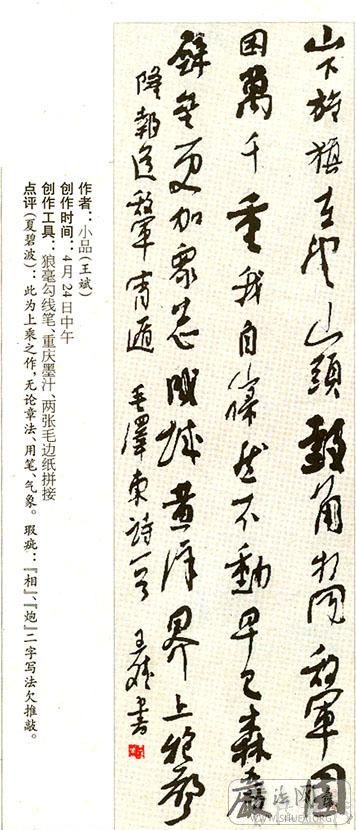 山下旌旗在望山頭鼓角相聞敵軍圍
困萬千重我自巋然不動早已森嚴
壁壘更加眾志成城黃洋界上炮聲
隆報道敵軍宵遁 毛澤東詩一首 王斌書
作者：小品(王斌)
创作时间：4月24日中午
创作工具：狼毫勾线笔、重庆墨汁、两张毛边纸拼接
点评(夏碧波)：此为上乘之作，无论章法、用笔、气象。 瑕疵：『相』、『炮』二字写法欠推敲。